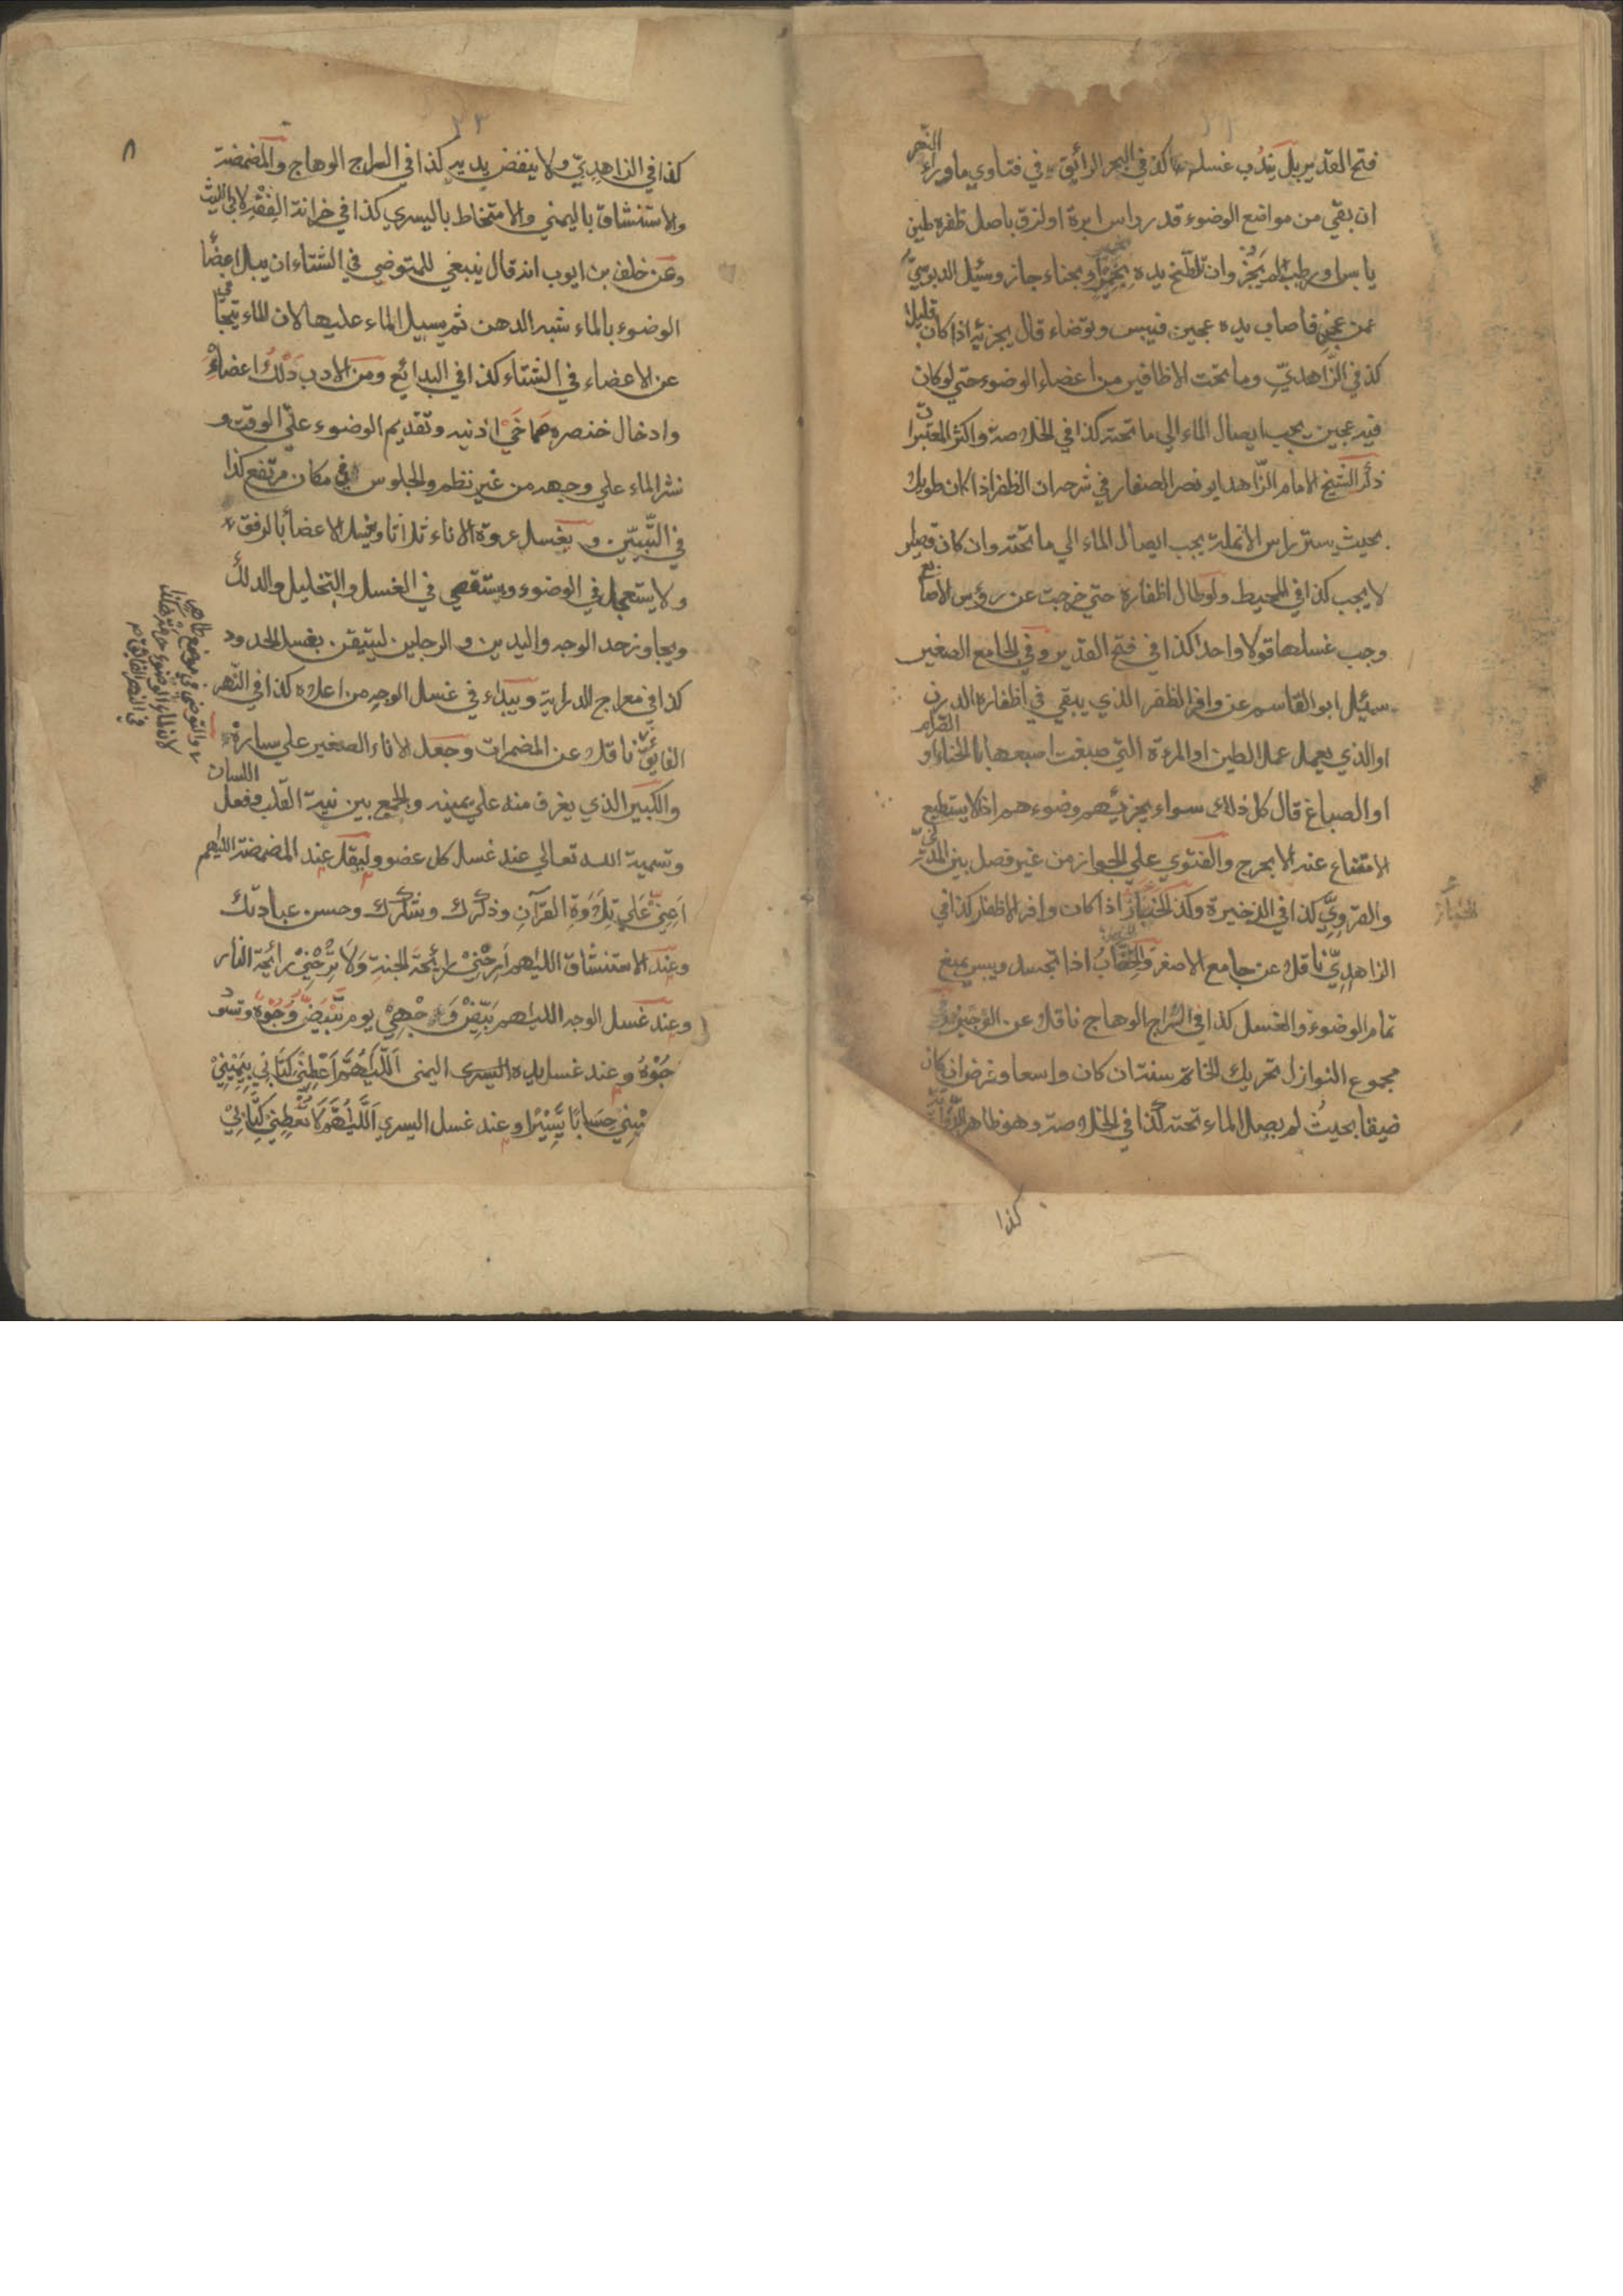 فتح القدير بل يندب غسلهما كذا في البحر الرائق وفي فتاوي ما وراء النهر
ان بقي من مواضع الوضوء قدر راس ابرة او لزق باصل ظفره طين
يابس او رطب لم يجز وان تلطخ يده بخمير او بحناء جاز وسئيل الدبوسي
عمن عجن فاصاب يده عجين فيبس وتوضاء قال يجزئه اذا كان قليلا
كذا في الزاهدي وما تحت الاظافير من اعضاء الوضوء حتي لو كان
فيه عجين يجب ايصال الماء الي ما تحته كذا في الخلاصة واكثر المعتبرات
ذكر الشيخ الامام الزاهد ابو نصر الصفار في شرحه ان الظفر اذا كان طويلا
بحيث يستر راس الانملة يجب ايصال الماء الي ما تحته وان كان قصيرا
لا يجب كذا في المحيط ولو طال اظفاره حتي خرجت عن رؤس الاصابع
وجب غسلها قولا واحدا كذا في فتح القدير وفي الجامع الصغير
سئيل ابو القاسم عن وافر الظفر الذي يبقي في اظفاره الدرن
او الذي يعمل عمل الطين او المرءة التي صبغت اصبعها بالحناء او الصرام
او الصباغ قال كل ذلك سواء يجزئهم وضوءهم اذ لا يستطيع
الامتناع عنه الا بحرج والفتوي علي الجواز من غير فصل بين المدني
والقروي كذا في الذخيرة وكذا الخباز اذا كان وافر الاظفار كذا في
الزاهدي ناقلا عن جامع الاصغر والخضاب اذا تجسد ويبس يمنع
تمام الوضوء والغسل كذا في السراج الوهاج ناقلا عن الوجيز وفي
مجموع النوازل تحريك الخاتم سنة ان كان واسعا وفرض ان كان
ضيقا بحيث لم يصل الماء تحته كذا في الخلاصة وهو ظاهر الرواية
كذا
الخباز
٨
كذا في الزاهدي ولا ينفض يديه كذا في السراج الوهاج والمضمضة
والاستنشاق باليمني والامتخاط باليسري كذا في خزانة الفقه لابي الليث
وعن خلف بن ايوب انه قال ينبغي للمتوضي في الشتاء ان يبل اعضا
الوضوء بالماء شبه الدهن ثم يسيل الماء عليها لان الماء يتجافي
عن الاعضاء في الشتاء كذا في البدائع ومن الادب دلك اعضاءه
وادخال خنصره صماخي اذنيه وتقديم الوضوء علي الوقت و
نشر الماء علي وجهه من غير نظم والجلوس في مكان مرتفع كذا
في التبيين ويغسل عروة الاناء ثلاثا ويغسل الاعضا بالرفق
ولا يستعجل في الوضوء ويستقصي في الغسل والتخليل والدلك
ويجاوز حد الوجه واليدين والرجلين ليتيقن بغسل الحدود
كذا في معراج الدراية ويبداء في غسل الوجه من اعلاه كذا في النهر
الفايق ناقلا عن المضمرات وجعل الاناء الصغير علي يساره
والكبير الذي يغرف منه علي يمينه والجمع بين نية القلب وفعل اللسان
وتسمية الله تعالي عند غسل كل عضو وليقل عند المضمضة اللهم
اَعِنِّي عَلَي تِلَاوَةِ القرآن وذكرك وشكرك وحسن عبادتك
وعند الاستنشاق اللهم اَرِحْنِيْ رائحة الجنة وَلَا تُرِحْنِيْ رائحة النار
وعند غسل الوجه اللهم بَيِّضْ وَجْهِيْ يوم تَبْيَضُّ وُجُوْهٌ وتسود
وُجُوْهٌ وعند غسل يده اليسرى اليمنى اَللّٰهُمَّ اَعْطِنِيْ كِتَابِيْ بِيَمِيْنِيْ
وَحَاسِبْنِيْ حِسَابًا يَّسِيْرًا وعند غسل اليسري اَللّٰهُمَّ لَا تُعْطِنِيْ كِتَابِيْ
والتوضي في موضع طاهر
لان لماء الوضوء حرمة كذا
في النهر الفايق